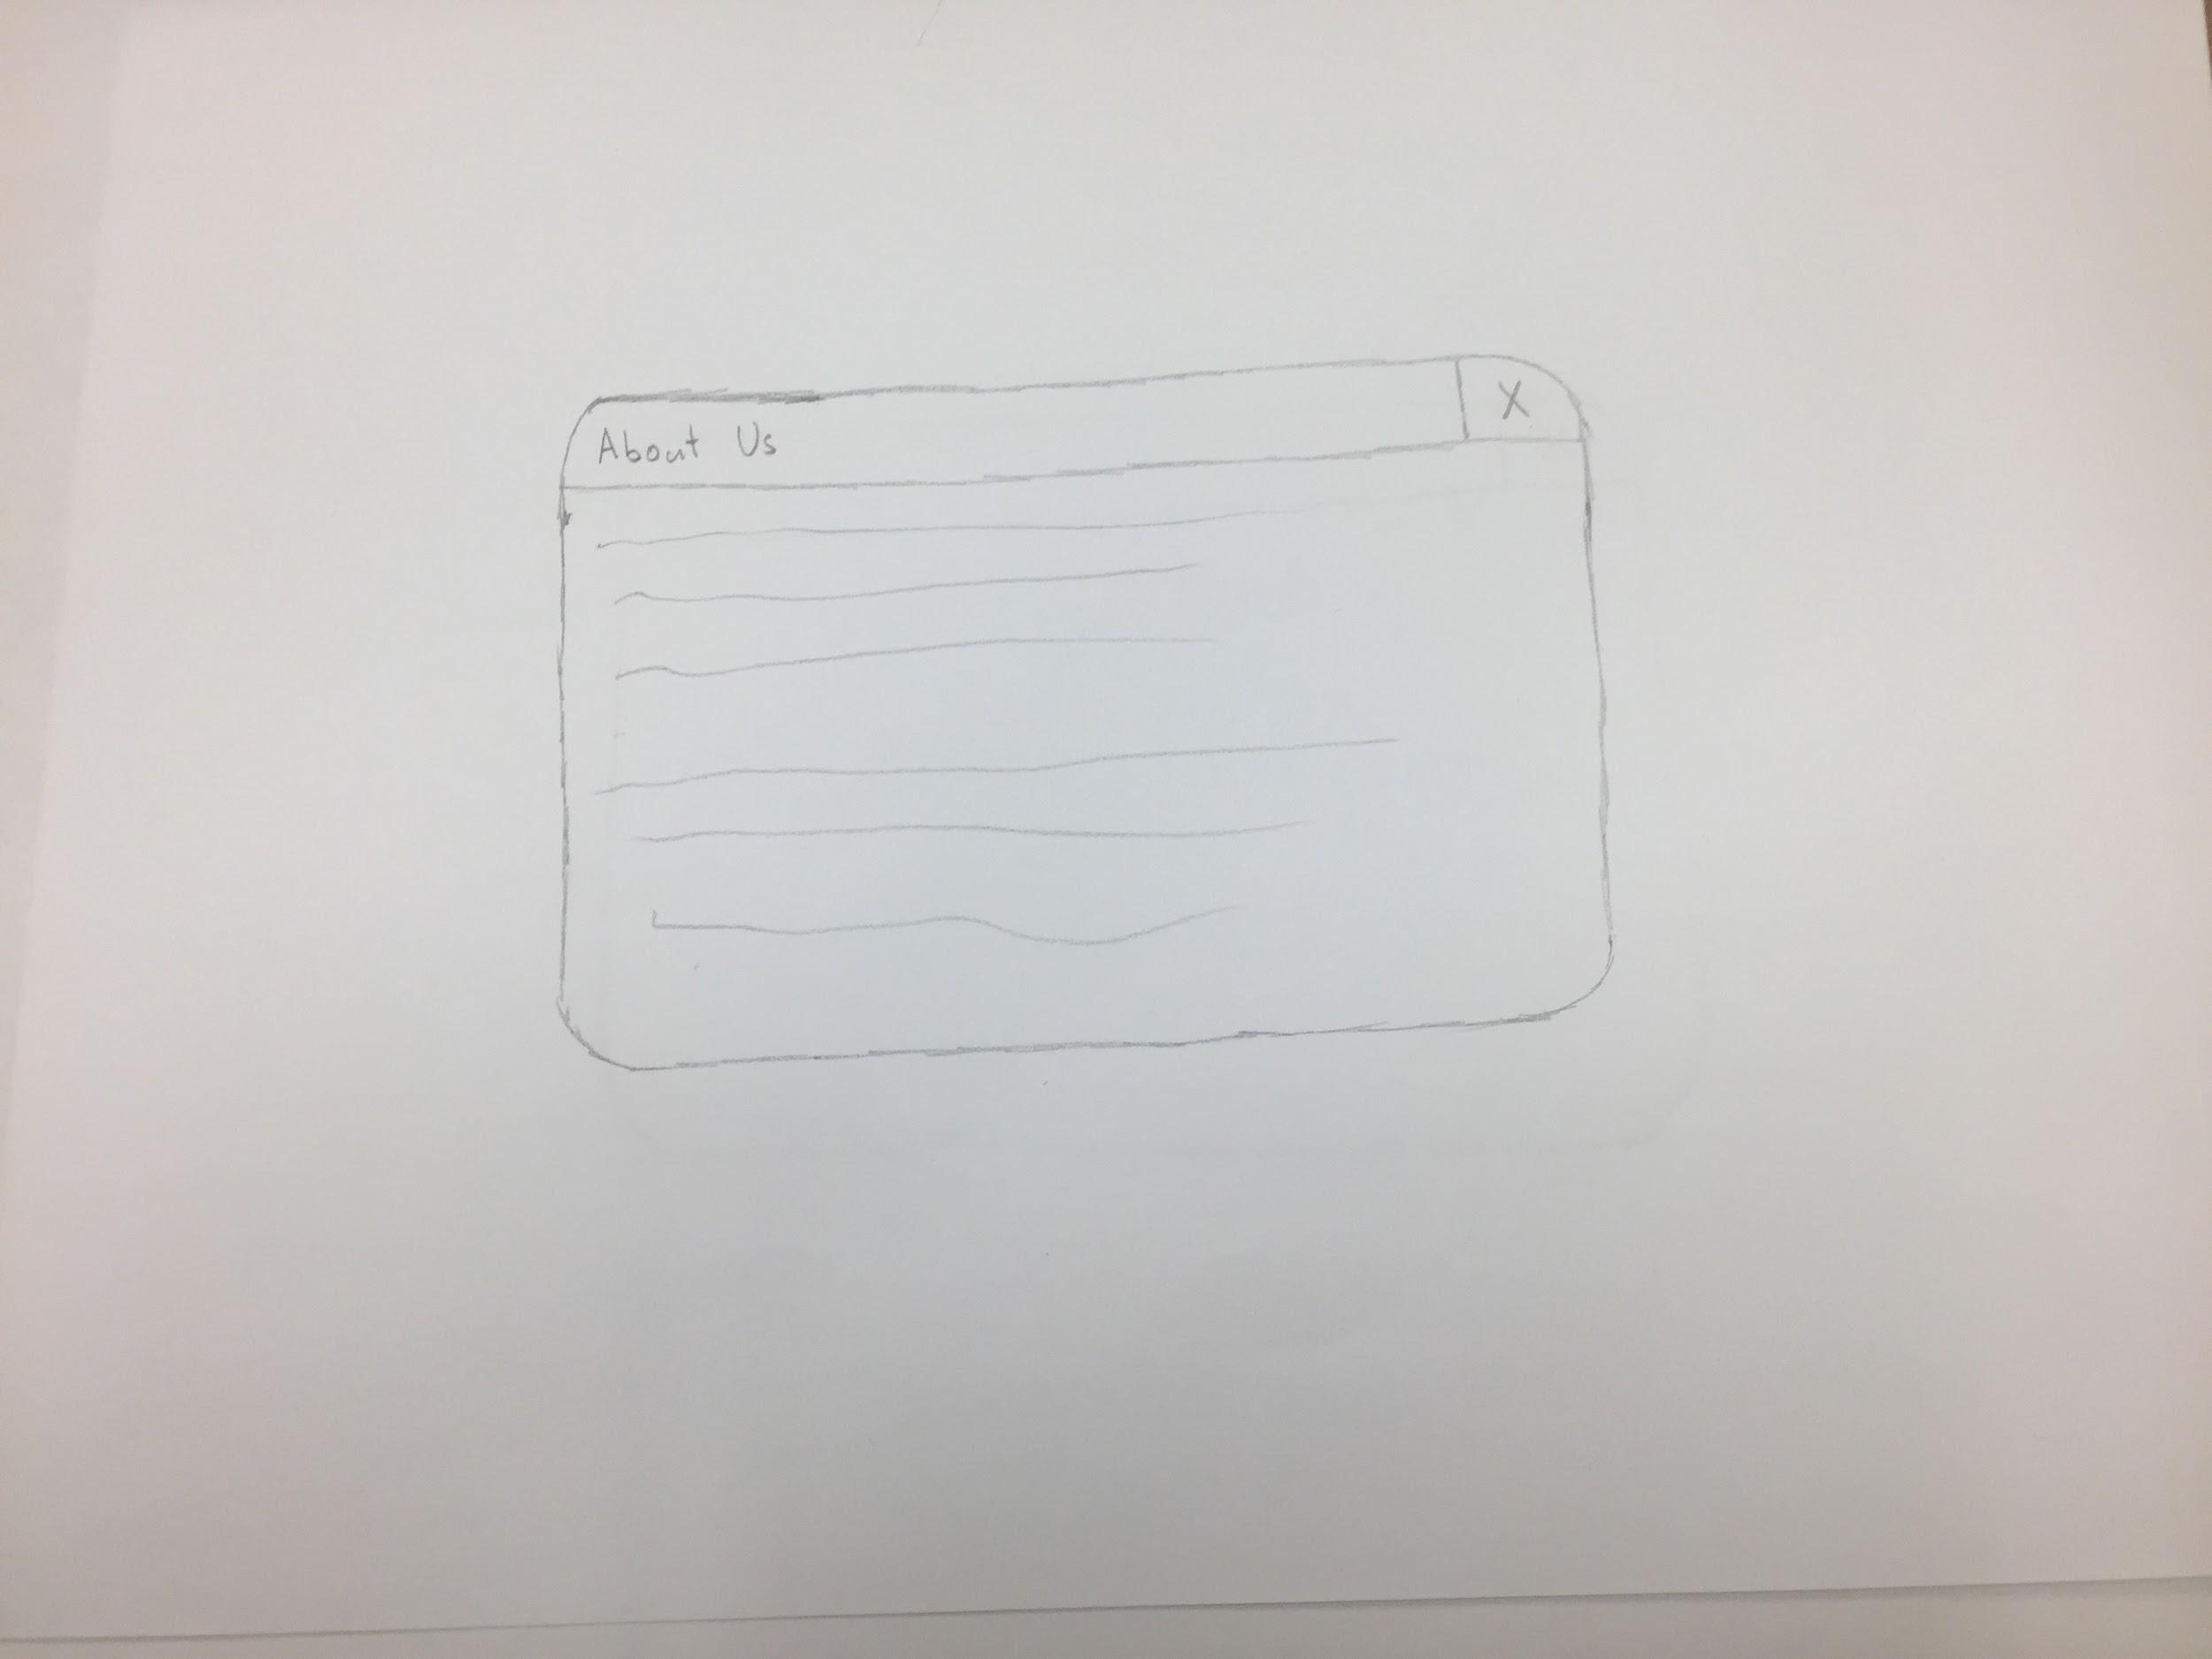 About Us
X